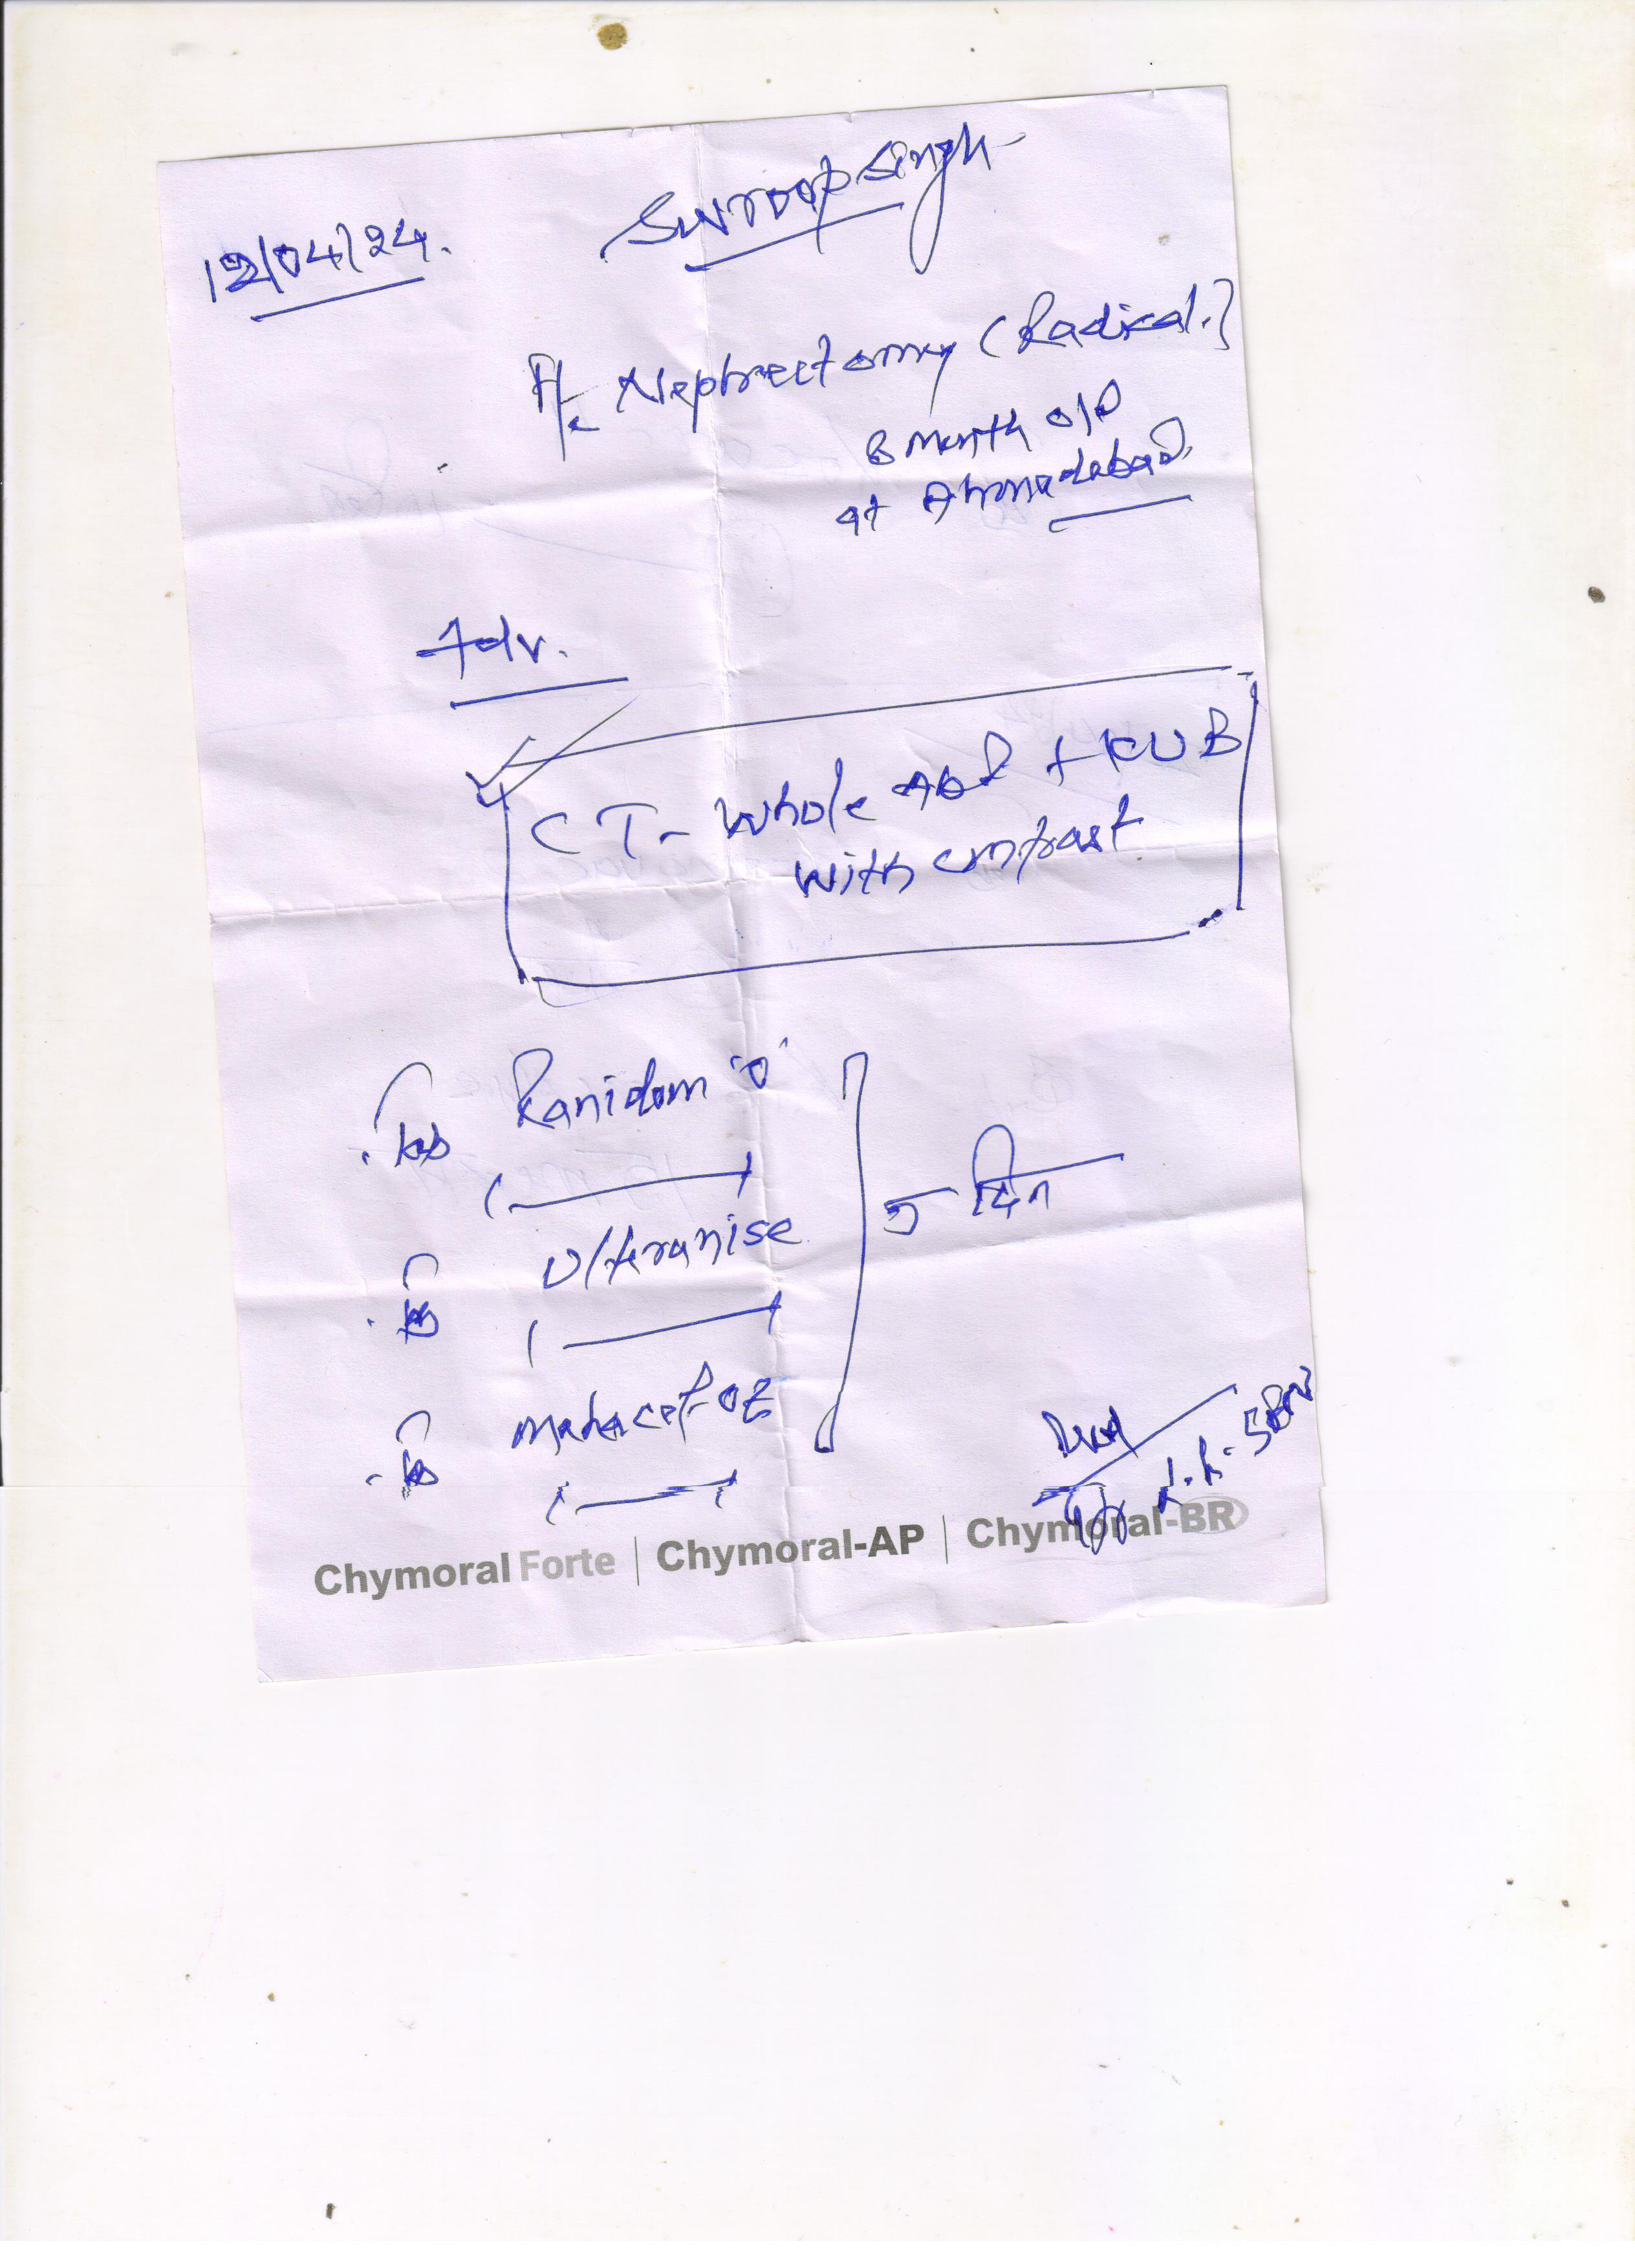 Swroopsingh
12/04/24.
H/c Nephrectomy (Radical.)
8 month old
at Ahmedabad
Adv.
CT- Whole Abd + KUB
with contrast
Tab Ranidom 'O'
1 — 1
Tab Ulteranise
1 — 1
Tab Mahacef-OZ
1 — 1
5 दिन
Dr
Chymoral Forte | Chymoral-AP | Chymoral-BR